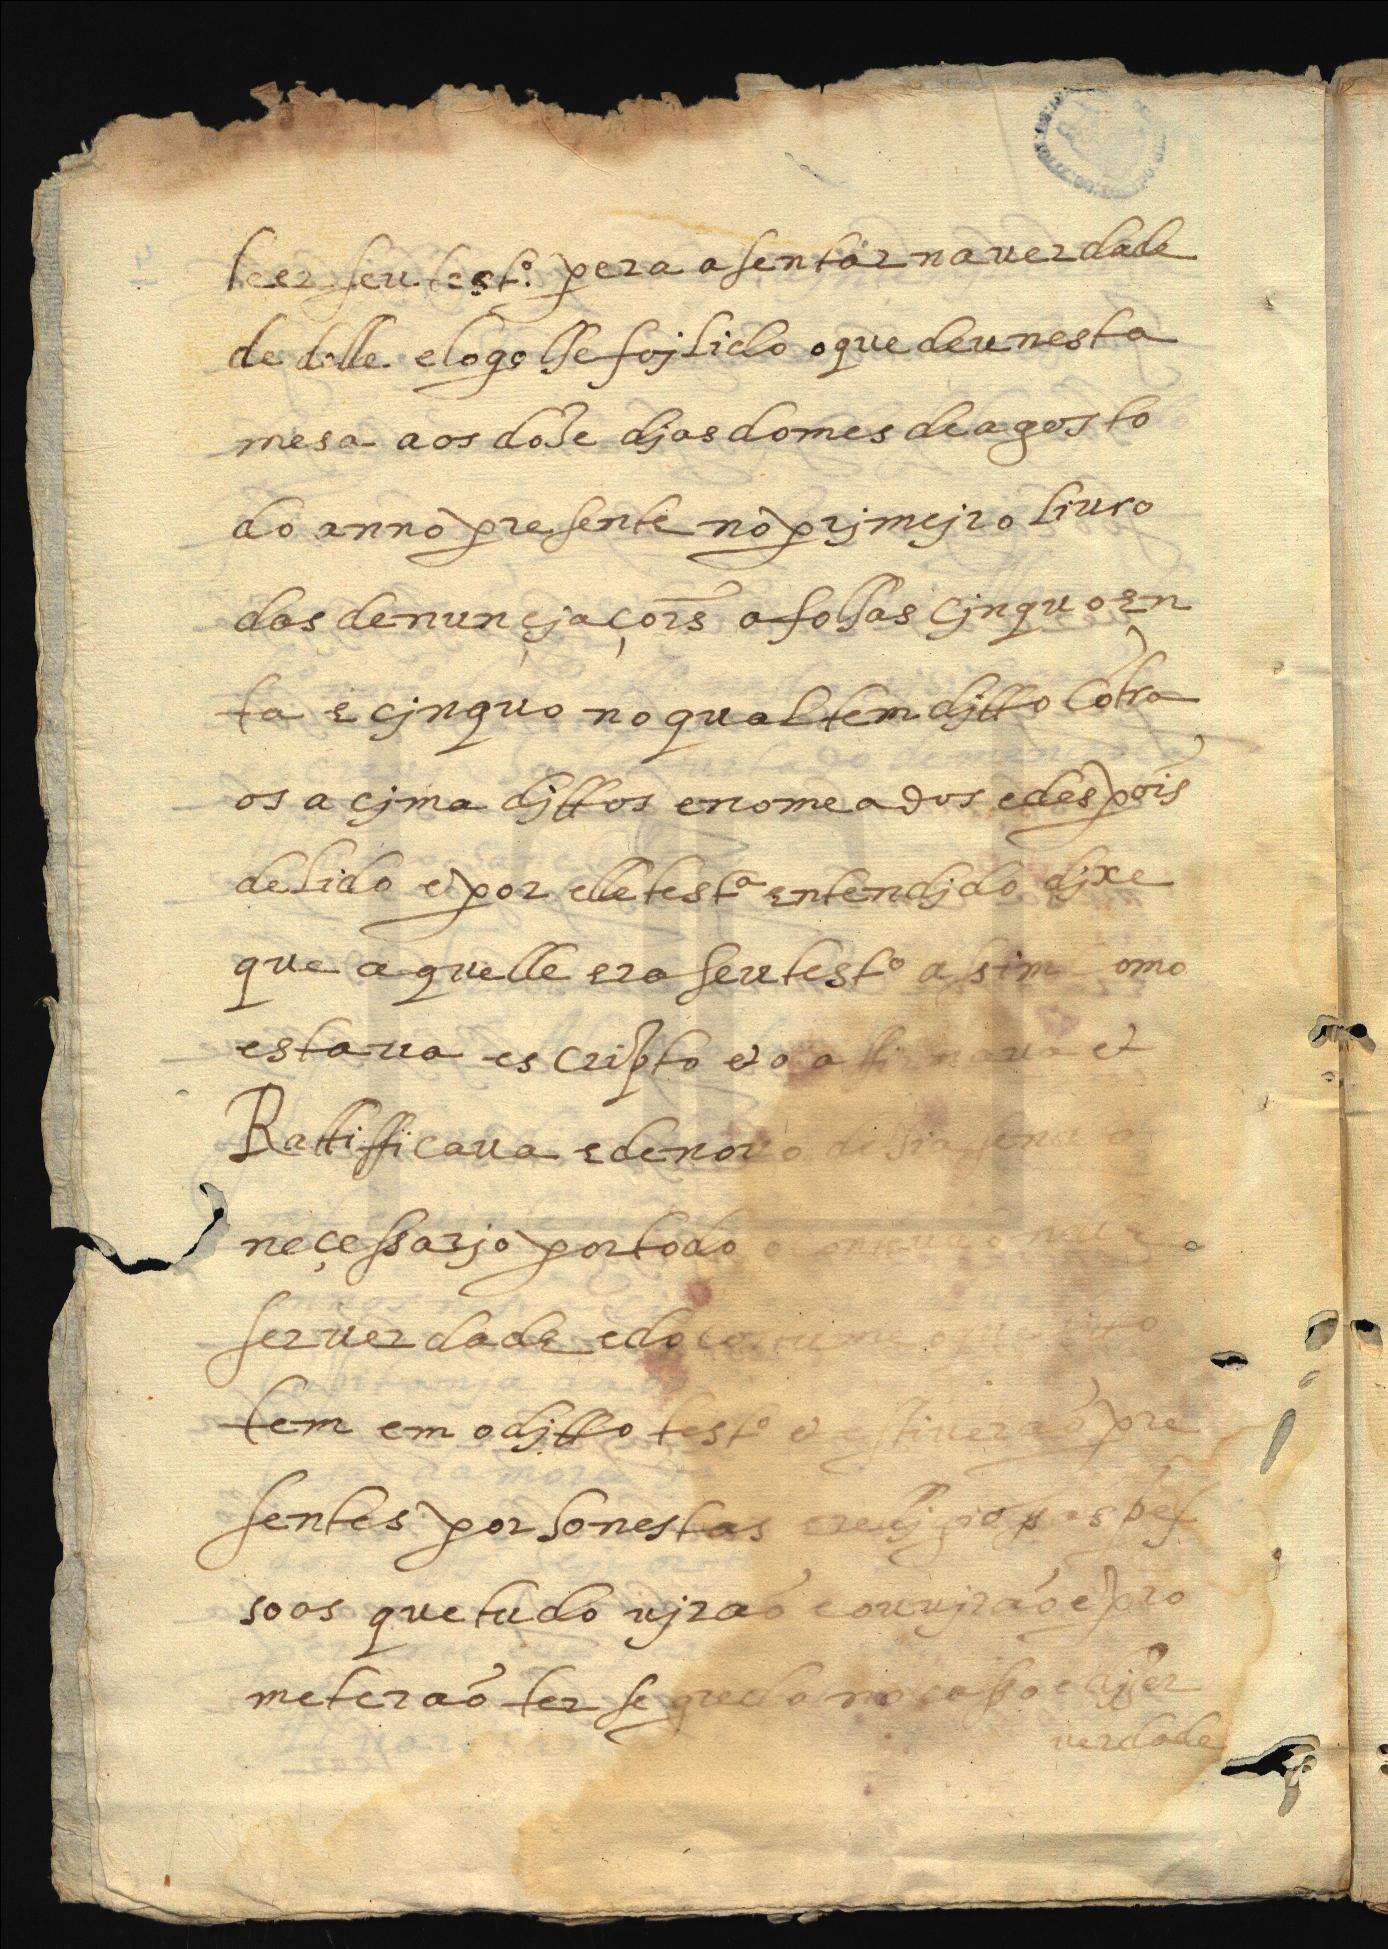 leer seu testº. pera asentar na uerdade
de delle e logo lhe foj lido o que deu nesta
mesa aos doze djas do mes de agosto
do anno presente no primejro liuro
das denunçjações a folhas cjnquoen
ta e cjnquo no qual tem djtto cõtra
os acjma djttos e nomeados e despois
de lido e por elle testª entendjdo djxe
que aquelle era seu testº assim omo
estaua escripto e o affirmaua e
Rattifficaua e de nouo dezia sendo
neçessarjo por todo o
ser uerdade e do costume o
tem em o djtto testº e estiueraõ pre
sentes por honestas e religiosas pes
soas que tudo ujraõ e ouujraõ e pro
meteraõ ter segredo no caso e dizer
uerdade